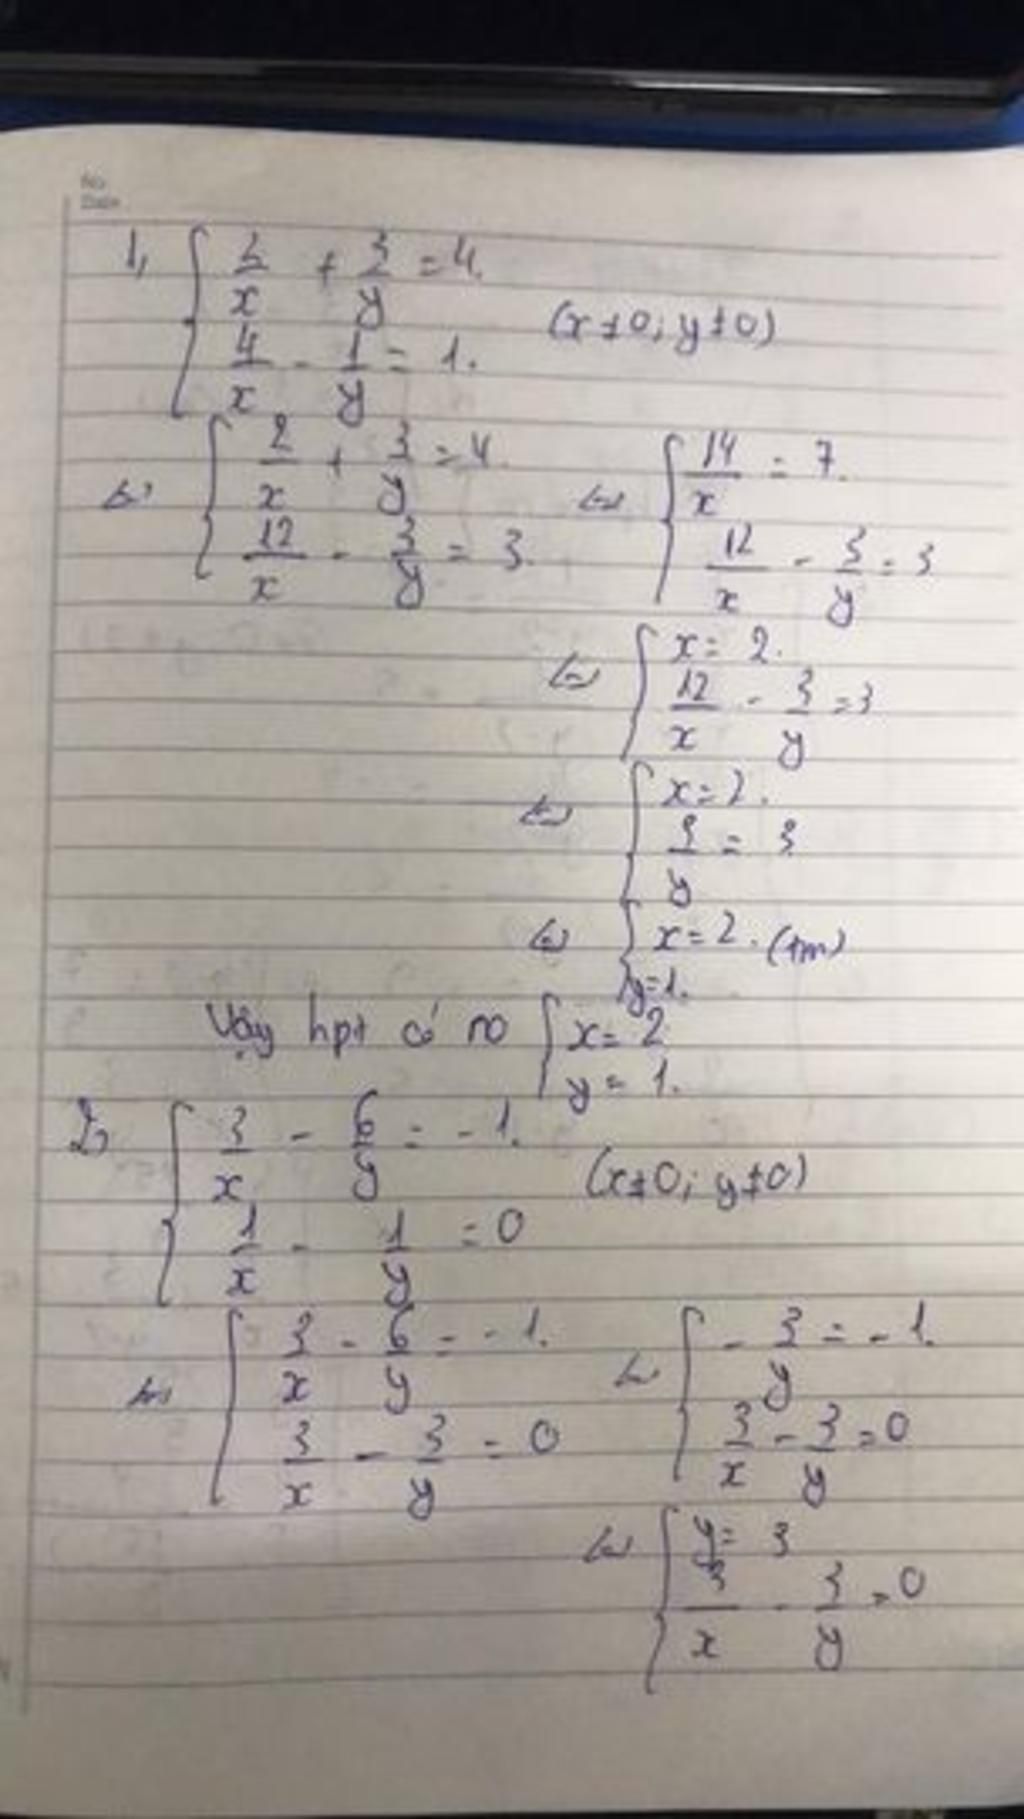 No
Date
1, { 2/x + 3/y = 4.
4/x - 1/y = 1. (x ≠ 0; y ≠ 0)
<=> { 2/x + 3/y = 4.
12/x - 3/y = 3.
<=> { 14/x = 7.
12/x - 3/y = 3
<=> { x = 2.
12/x - 3/y = 3
<=> { x = 2.
3/y = 3
<=> { x = 2. (tm)
y = 1.
Vậy hpt có no { x = 2
y = 1.
2, { 3/x - 6/y = -1.
1/x - 1/y = 0 (x ≠ 0; y ≠ 0)
<=> { 3/x - 6/y = -1.
3/x - 3/y = 0
<=> { -3/y = -1.
3/x - 3/y = 0
<=> { y = 3
3/x - 3/y = 0